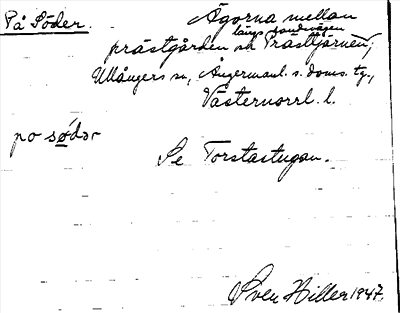 På Söder.
Ägorna mellan
längs landsvägen
prästgården och Prästtjärnen,
Ullångers sn, Ångermanl. s. doms. tg.,
Västernorrl. l.
po sødər
Se Torstastugan.
Sven Hiller 1947.